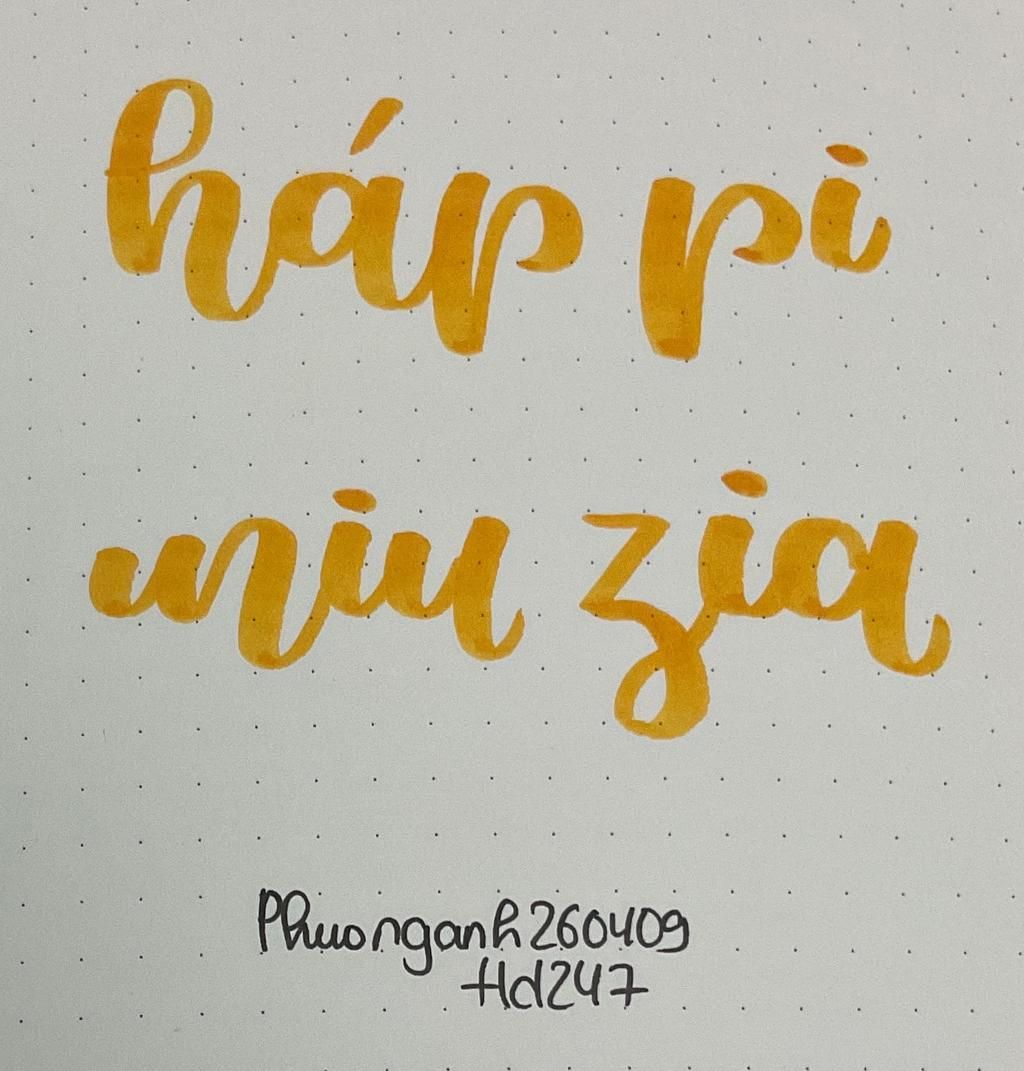 háp pi
niu zia
Phuonganh260409
Hd247